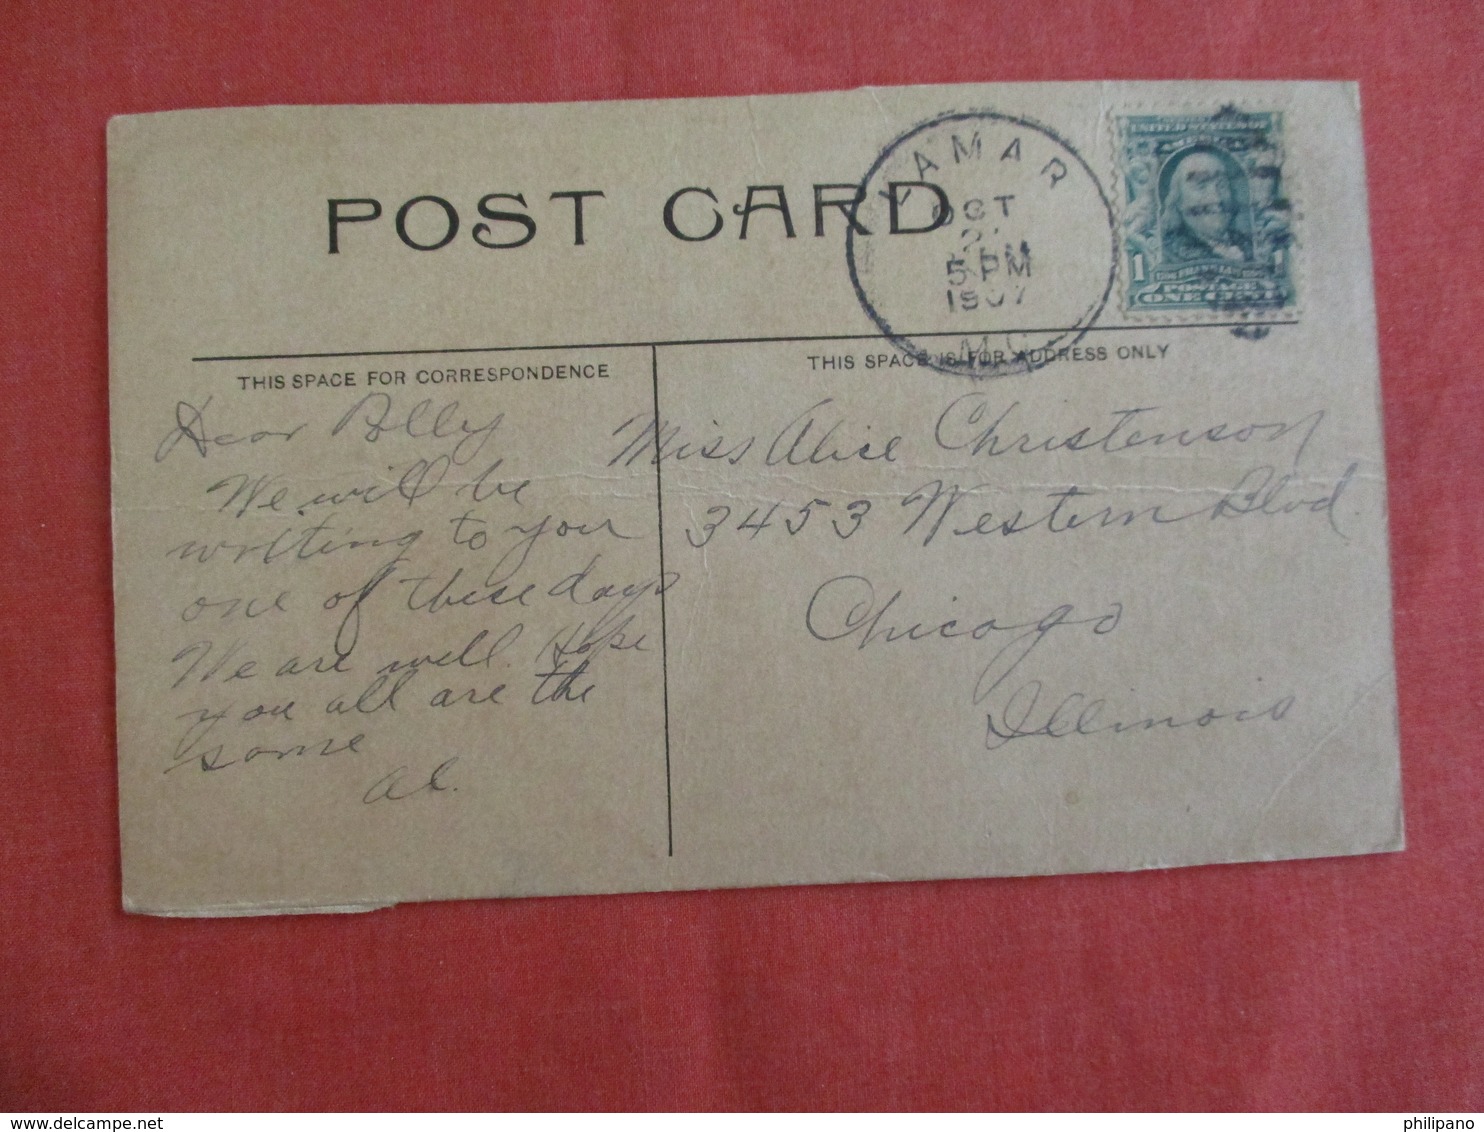 POST CARD
LAMAR
OCT
21
5 PM
1907
MO.
UNITED STATES OF
AMERICA
1 1
POSTAGE
ONE CENT
THIS SPACE FOR CORRESPONDENCE
THIS SPACE IS FOR ADDRESS ONLY
Dear Polly
We will be
writing to you
one of these days
We are well. Hope
you all are the
same
Al.
Miss Alice Christenson
3453 Western Blvd.
Chicago
Illinois
philipano
delcampe.net